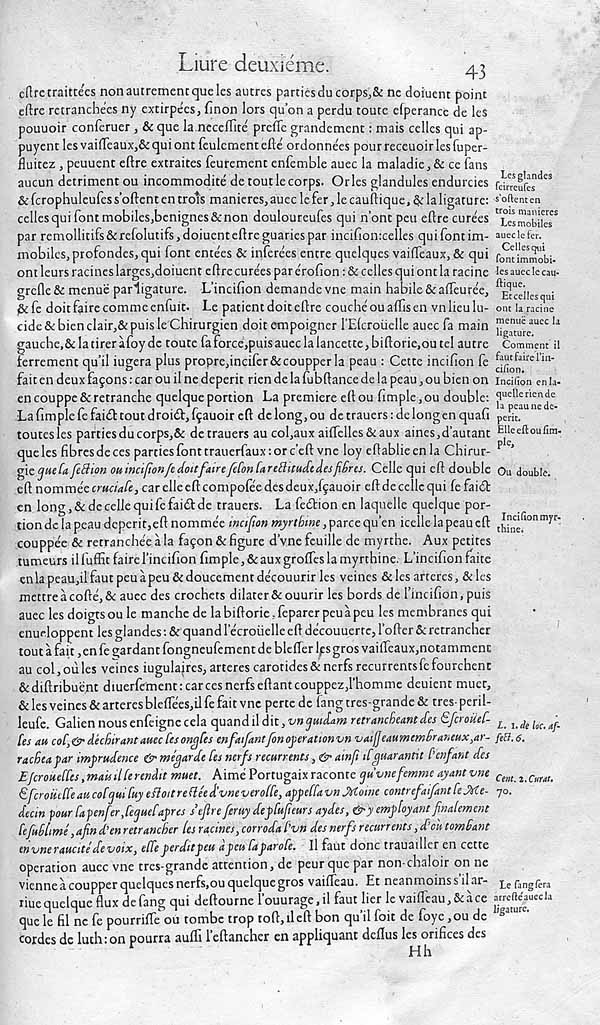 Liure deuxiéme.
43
eſtre traittées non autrement que les autres parties du corps, & ne doiuent point
eſtre retranchées ny extirpées, ſinon lors qu'on a perdu toute eſperance de les
pouuoir conſeruer, & que la neceſſité preſſe grandement : mais celles qui ap-
puyent les vaiſſeaux, & qui ont ſeulement eſté ordonnées pour receuoir les ſuper-
fluitez, peuuent eſtre extraites ſeurement enſemble auec la maladie, & ce ſans
aucun detriment ou incommodité de tout le corps. Or les glandules endurcies
& ſcrophuleuſes s'oſtent en trois manieres, auec le fer, le cauſtique, & la ligature:
celles qui ſont mobiles, benignes & non douloureuſes qui n'ont peu eſtre curées
par remollitifs & reſolutifs, doiuent eſtre guaries par inciſion: celles qui ſont im-
mobiles, profondes, qui ſont entées & inſerées entre quelques vaiſſeaux, & qui
ont leurs racines larges, doiuent eſtre curées par éroſion : & celles qui ont la racine
greſle & menuë par ligature. L'inciſion demande vne main habile & aſſeurée,
& ſe doit faire comme enſuit. Le patient doit eſtre couché ou aſſis en vn lieu lu-
cide & bien clair, & puis le Chirurgien doit empoigner l'Eſcroüelle auec ſa main
gauche, & la tirer à ſoy de toute ſa force, puis auec la lancette, biſtorie, ou tel autre
ferrement qu'il iugera plus propre, inciſer & coupper la peau : Cette inciſion ſe
fait en deux façons : car ou il ne deperit rien de la ſubſtance de la peau, ou bien on
en couppe & retranche quelque portion La premiere eſt ou ſimple, ou double:
La ſimple ſe faict tout droict, ſçauoir eſt de long, ou de trauers : de long en quaſi
toutes les parties du corps, & de trauers au col, aux aiſſelles & aux aines, d'autant
que les fibres de ces parties ſont trauerſaux : or c'eſt vne loy eſtablie en la Chirur-
gie que la ſection ou inciſion ſe doit faire ſelon la rectitude des fibres. Celle qui eſt double
eſt nommée cruciale, car elle eſt compoſée des deux, ſçauoir eſt de celle qui ſe faict
en long, & de celle qui ſe faict de trauers. La ſection en laquelle quelque por-
tion de la peau deperit, eſt nommée inciſion myrthine, parce qu'en icelle la peau eſt
couppée & retranchée à la façon & figure d'vne feuille de myrthe. Aux petites
tumeurs il ſuffit faire l'inciſion ſimple, & aux groſſes la myrthine. L'inciſion faite
en la peau, il faut peu à peu & doucement découurir les veines & les arteres, & les
mettre à coſté, & auec des crochets dilater & ouurir les bords de l'inciſion, puis
auec les doigts ou le manche de la biſtorie, ſeparer peu à peu les membranes qui
enueloppent les glandes : & quand l'écroüelle eſt découuerte, l'oſter & retrancher
tout à fait, en ſe gardant ſongneuſement de bleſſer les gros vaiſſeaux, notamment
au col, où les veines iugulaires, arteres carotides & nerfs recurrents ſe fourchent
& diſtribuënt diuerſement : car ces nerfs eſtant couppez, l'homme deuient muet,
& les veines & arteres bleſſées, il ſe fait vne perte de ſang tres-grande & tres-peril-
leuſe. Galien nous enſeigne cela quand il dit, vn quidam retrancheant des Eſcroüel-
les au col, & déchirant auec ſes ongles en faiſant ſon operation vn vaiſſeau membraneux, ar-
rachea par imprudence & mégarde les nerfs recurrents, & ainſi il guarantit l'enfant des
Eſcrouelles, mais il le rendit muet. Aimé Portugaix raconte qu'vne femme ayant vne
Eſcroüelle au col qui luy eſtoit reſtée d'vne verolle, appella vn Moine contrefaiſant le Me-
decin pour la penſer, lequel apres s'eſtre ſeruy de pluſieurs aydes, & y employant finalement
le ſublimé, afin d'en retrancher les racines, corroda l'vn des nerfs recurrents, d'où tombant
en vne raucité de voix, elle perdit peu à peu la parole. Il faut donc trauailler en cette
operation auec vne tres-grande attention, de peur que par non-chaloir on ne
vienne à coupper quelques nerfs, ou quelque gros vaiſſeau. Et neanmoins s'il ar-
riue quelque flux de ſang qui deſtourne l'ouurage, il faut lier le vaiſſeau, & à ce
que le fil ne ſe pourriſſe ou tombe trop toſt, il eſt bon qu'il ſoit de ſoye, ou de
cordes de luth : on pourra auſſi l'eſtancher en appliquant deſſus les orifices des
Hh
Les glandes
ſcirreuſes
s'oſtent en
trois manieres
Les mobiles
auec le fer.
Celles qui
ſont immobi-
les auec le cau-
ſtique.
Et celles qui
ont la racine
menuë auec la
ligature.
Comment il
faut faire l'in-
ciſion.
Inciſion en la-
quelle rien de
la peau ne de-
perit.
Elle eſt ou ſim-
ple,
Ou double.
Inciſion myr-
thine.
L. 1. de loc. af-
fect. 6.
Cent. 2. Curat.
70.
Le ſang ſera
arreſté auec la
ligature.